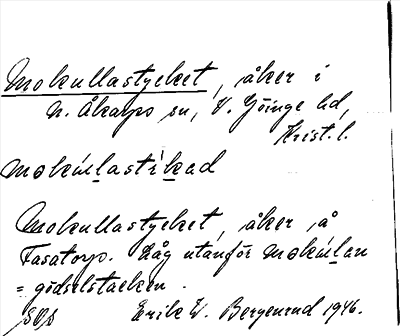 Mokullastycket, åker i
N. Åkarps sn, V. Göinge hd,
Krist. l.
mokúllastìkad
Mokullastycket, åker på
Tasatorp. Låg utanför mokúllan
= gödselstacken.
Erik W. Bergenrud 1946.